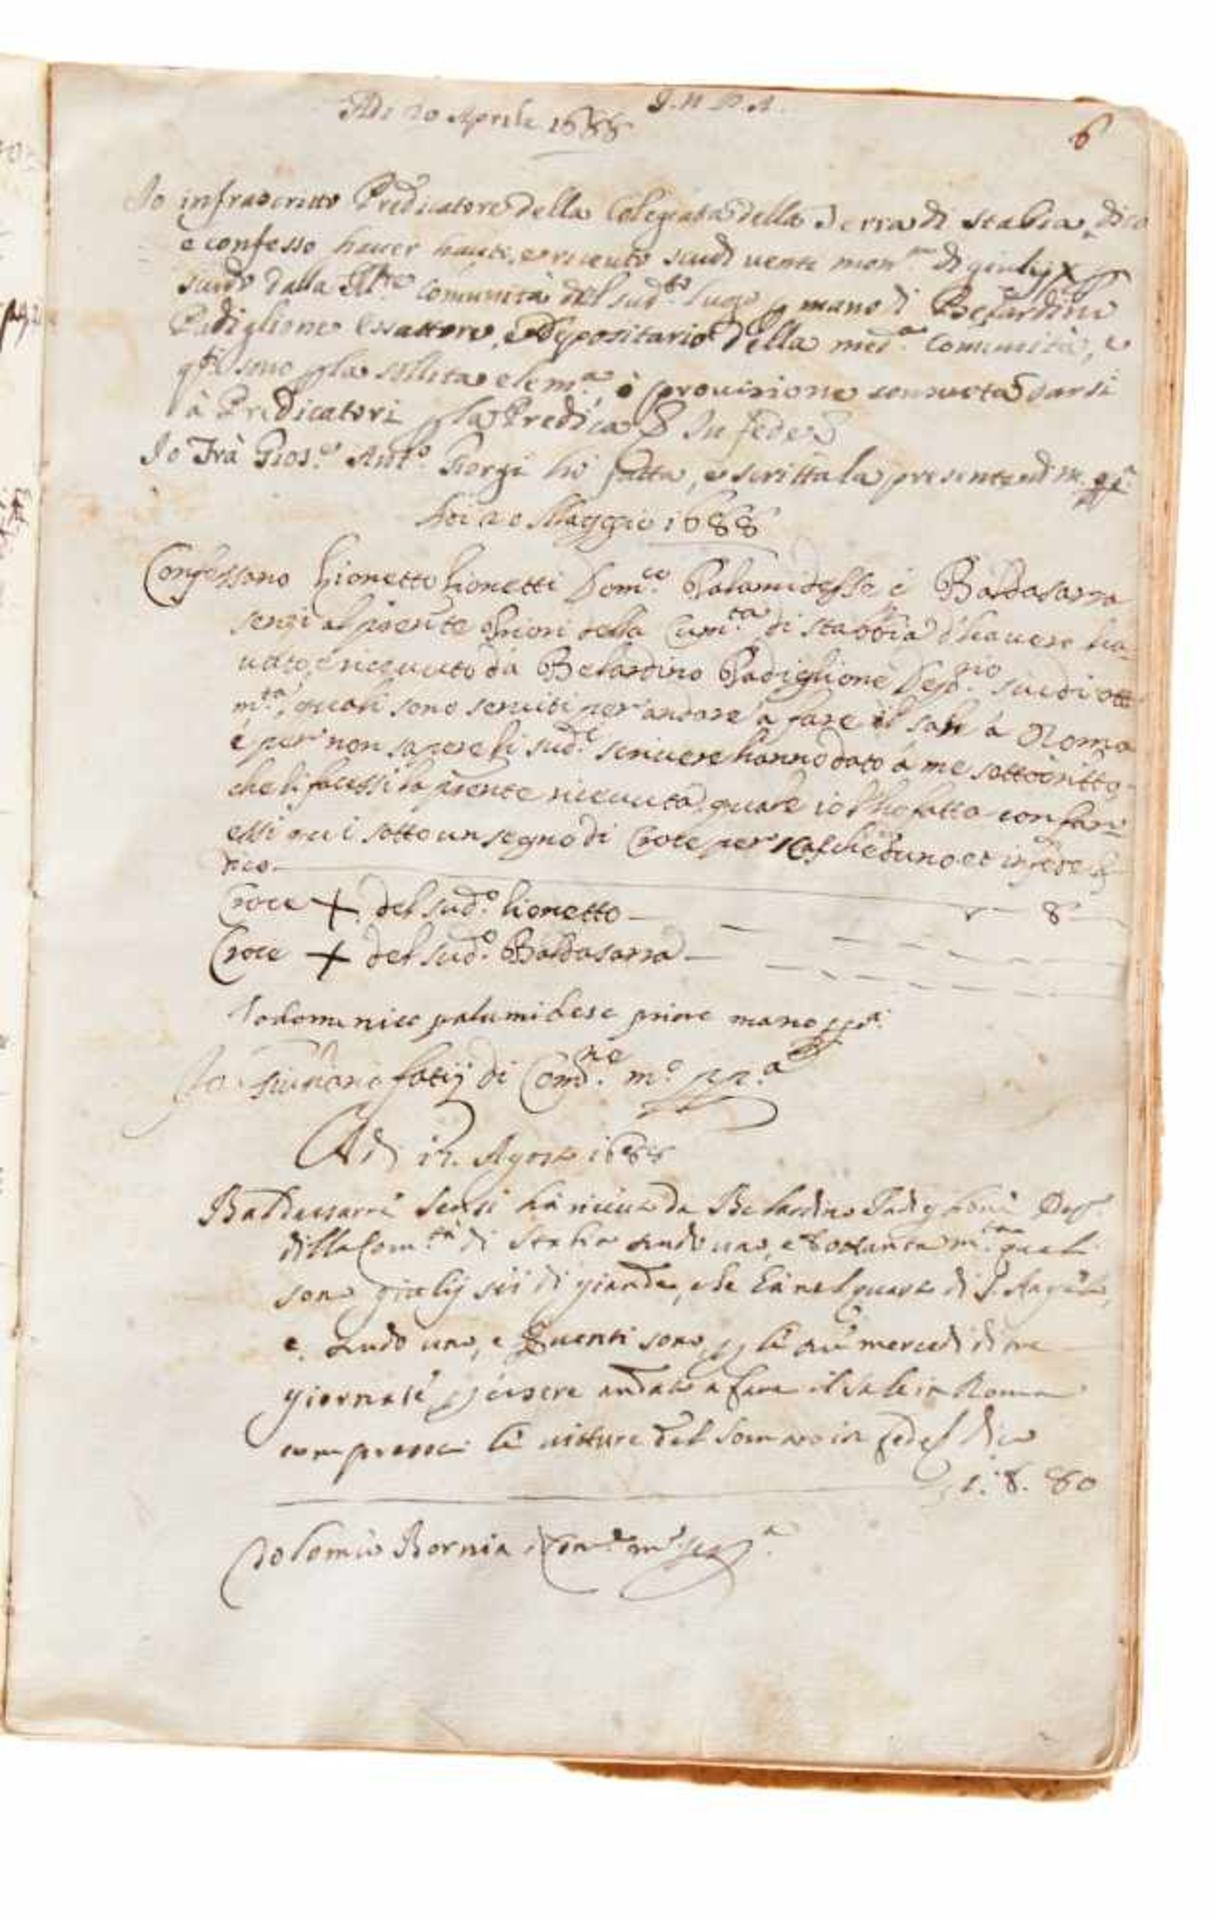 J. N. D. A.
Adi 20 Aprile 1688
6
Io infrascritto Predicatore della Colegiata della Terra di Stabia, dico
e confesso haver hauti, e riceuto scudi venti mon.ta di giulij X
scudo dalla Ill.re Comunità del sud.to luogo p mano di Belardino
Padiglione Essattore, e Depositario della med.a Comunità, e
q.ti sono p la solita elem.a ò provisione consueta darsi
à Predicatori p la Predica & In fede &
Io Frà Gios.e Ant.o Giorgi hò fatta, e scritta la presente di m. pp.a
Adi 20 Maggio 1688
Confessano Lionetto Lionetti Dom.co Palamidesse è Baldasarra
Sensi al pñte Priori della Com.tà di Stabbia d'havere ha-
vuto, e ricevuto da Belardino Padiglione Dep.rio scudi otto
m.ta, quali sono serviti per andare a fare il sale à Roma
è per non sapere li sud.i scrivere hanno dato à me sottoscritto
che li facessi la pñte ricevuta, quale io l'ho fatta con fare
essi qui sotto un segno di Croce per ciascheduno et in fede &
dico
Croce + del sud.o Lionetto 8
Croce + del sud.o Baldasarra
Io domenico palamidese priore mano pp.a
Io fatij di Com.ne m.o pp.a
Adi 17. Agosto 1688
Baldassarre Sensi hà riceuto da Belardino Padiglioni Dep.
della Com.tà di Stabia scudo uno, e ottanta m.ta quali
sono giulij sei di giande, che hà nel quarto di S. Angelo,
e scudo uno, e venti sono p le sue mercedi di tre
giornate p essere andato a fare il sale in Roma
compresoci le vitture del somaro in fede dico
1. 8. 80
Io Bornia m.o pp.a